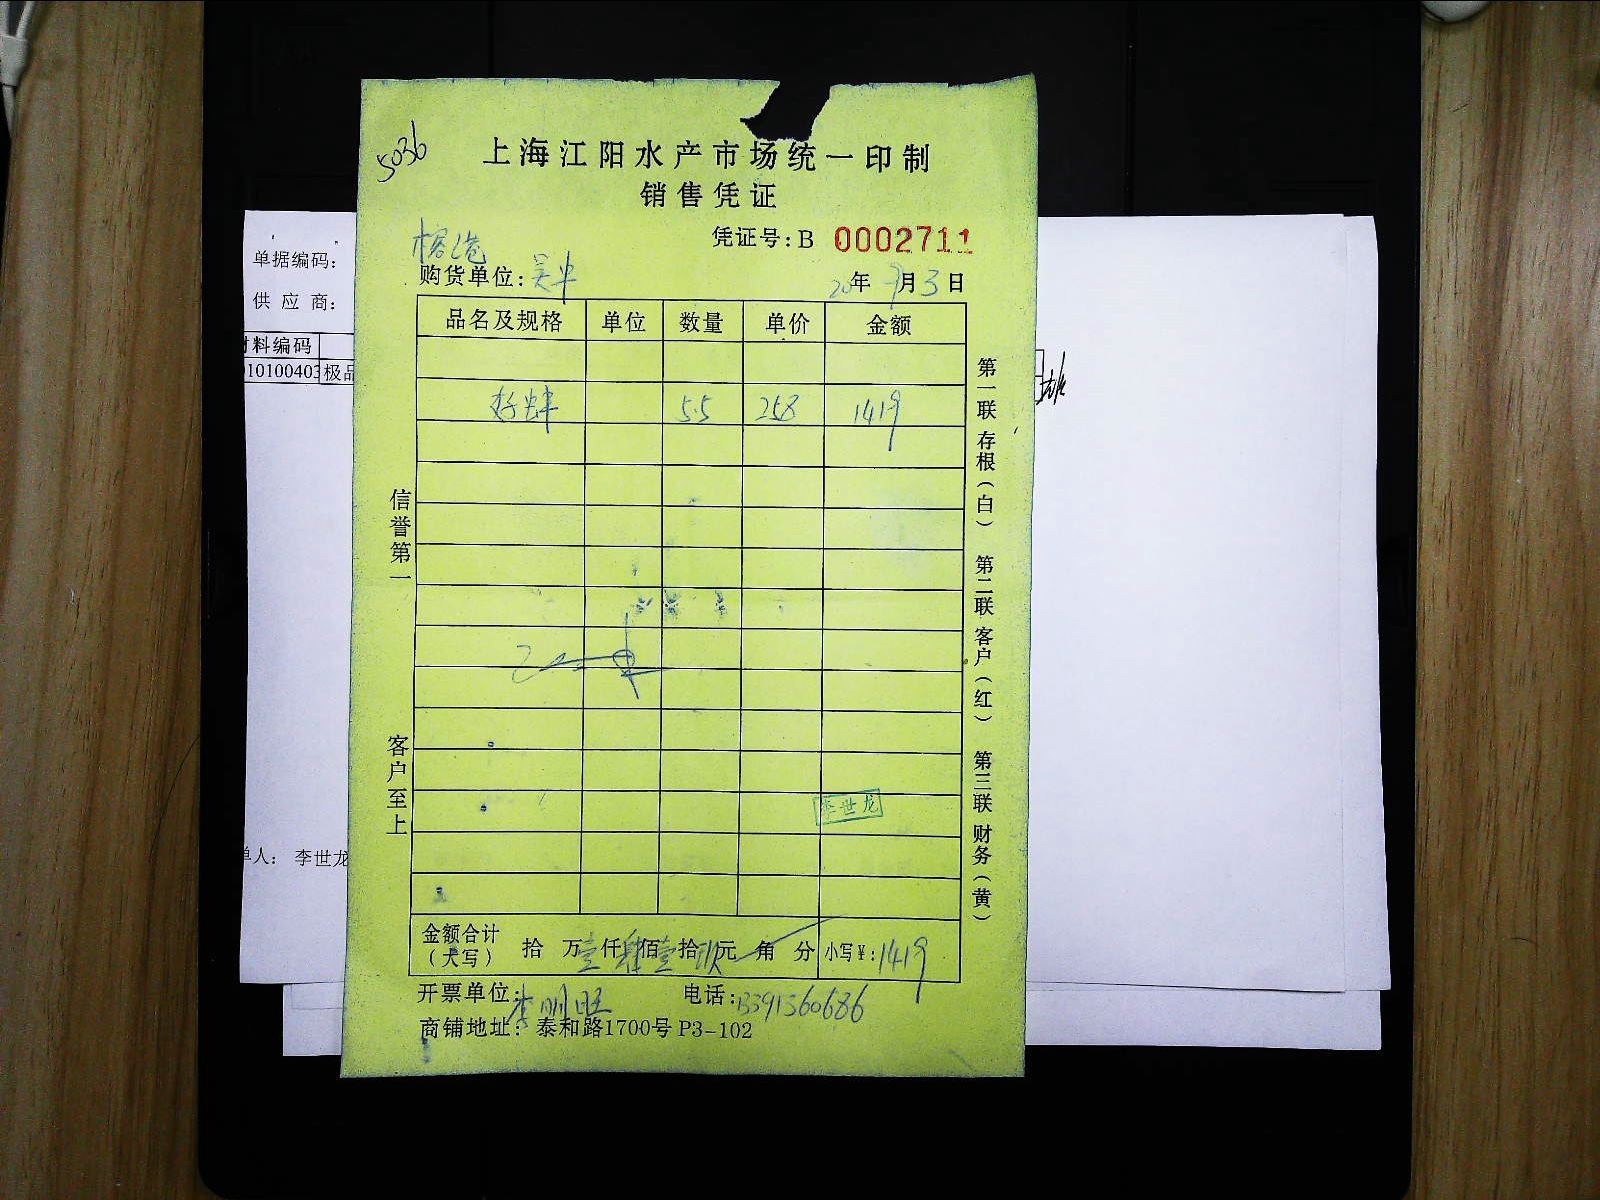 5036
上海江阳水产市场统一印制
销售凭证
凭证号:B 0002711
购货单位:
20年 9月3日
品名及规格 单位 数量 单价 金额
5.5 258 1419
信誉第一
客户至上
第一联 存根(白) 第二联 客户(红) 第三联 财务(黄)
李世龙
金额合计(大写) 拾 万壹仟肆佰壹拾玖元 角 分 小写¥:1419
开票单位:李明旺 电话:13391360686
商铺地址: 泰和路1700号 P3-102
单据编码:
供 应 商:
材料编码
010100403 极品
单人: 李世龙